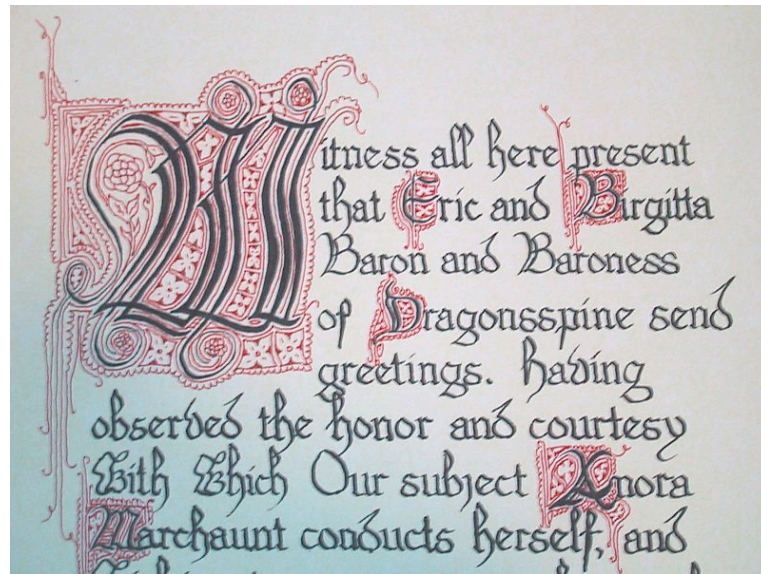 Witness all here present
that Eric and Birgitta
Baron and Baroness
of Dragonsspine send
greetings. Having
observed the honor and courtesy
With Which Our subject Anora
Marchaunt conducts herself, and